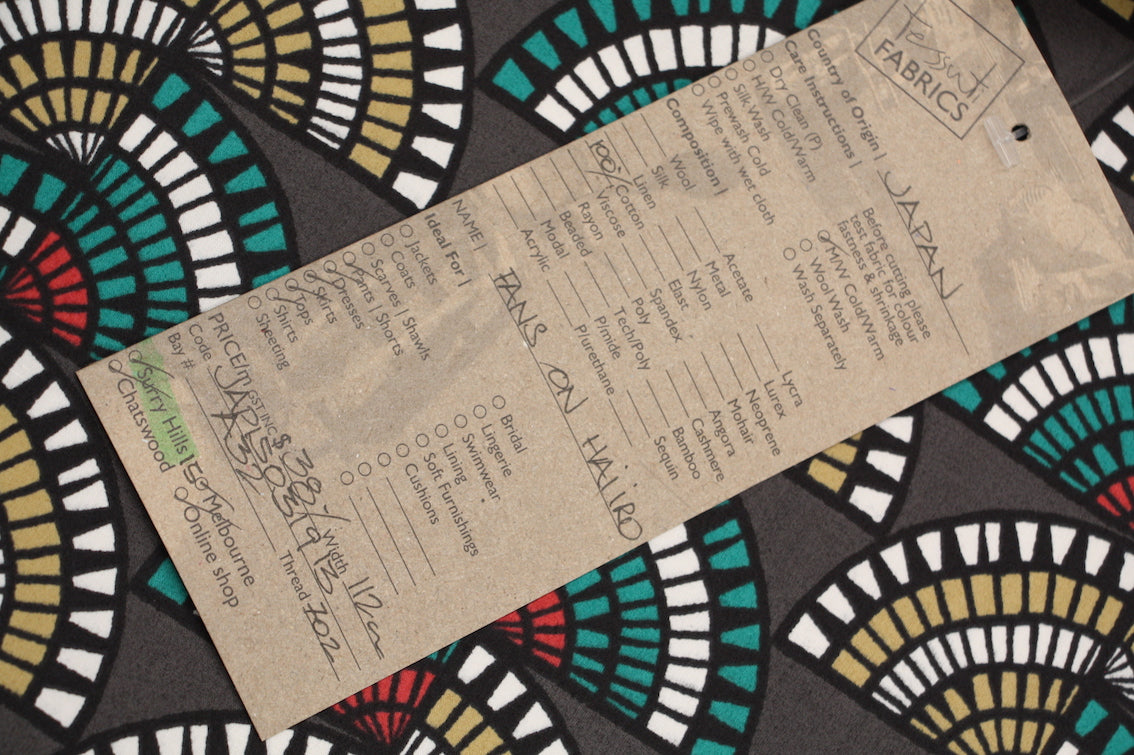 tessuti
FABRICS
Country of Origin | JAPAN
Care Instructions |
Before cutting please
test fabric for colour
fastness & shrinkage
Dry Clean (P)
H/W Cold/Warm
Silk Wash
Prewash Cold
Wipe with wet cloth
M/W Cold/Warm
Wool Wash
Wash Separately
Composition |
Wool
Silk
Linen
100% Cotton
Viscose
Rayon
Beaded
Modal
Acrylic
Acetate
Metal
Nylon
Elast
Spandex
Poly
Tech/Poly
P/mide
P/urethane
Lycra
Lurex
Neoprene
Mohair
Angora
Cashmere
Bamboo
Sequin
NAME | FANS ON HAIIRO
Ideal For |
Jackets
Coats
Scarves | Shawls
Pants | Shorts
Dresses
Skirts
Tops
Shirts
Sheeting
Bridal
Lingerie
Swimwear
Lining
Soft Furnishings
Cushions
PRICE/m GST INC $ 38/ Width 112cm
Code Thread 202
Bay #
Surry Hills 15 Melbourne
Chatswood Online shop